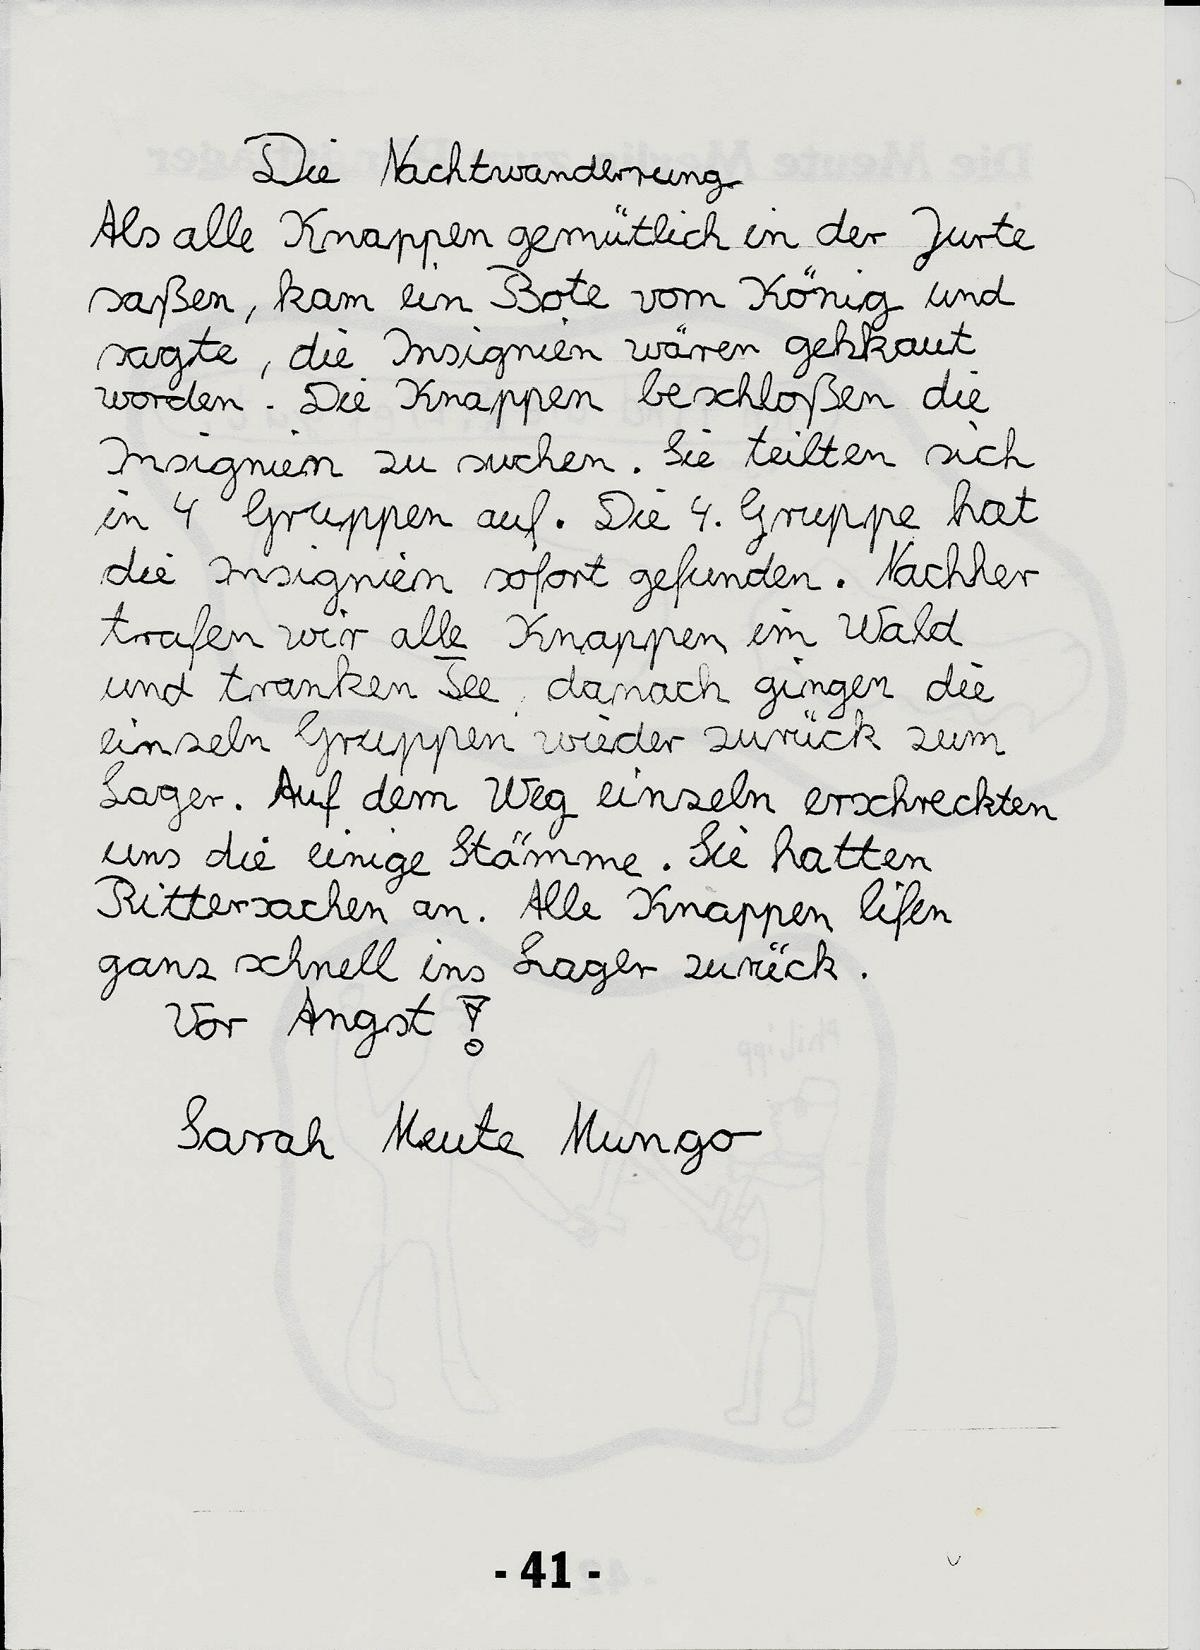 Die Nachtwanderrung
Als alle Knappen gemütlich in der Jurte
saßen, kam ein Bote vom König und
sagte, die Insignien wären gehkaut
worden. Die Knappen beschloßen die
Insignien zu suchen. Sie teilten sich
in 4 Gruppen auf. Die 4. Gruppe hat
die Insignien sofort gefunden. Nachher
trafen wir alle Knappen im Wald
und tranken Tee, danach gingen die
einzeln Gruppen wieder zurück zum
Lager. Auf dem Weg einzeln erschreckten
uns die einige Stämme. Sie hatten
Rittersachen an. Alle Knappen lifen
ganz schnell ins Lager zurück.
Vor Angst!
Sarah Meute Mungo
- 41 -